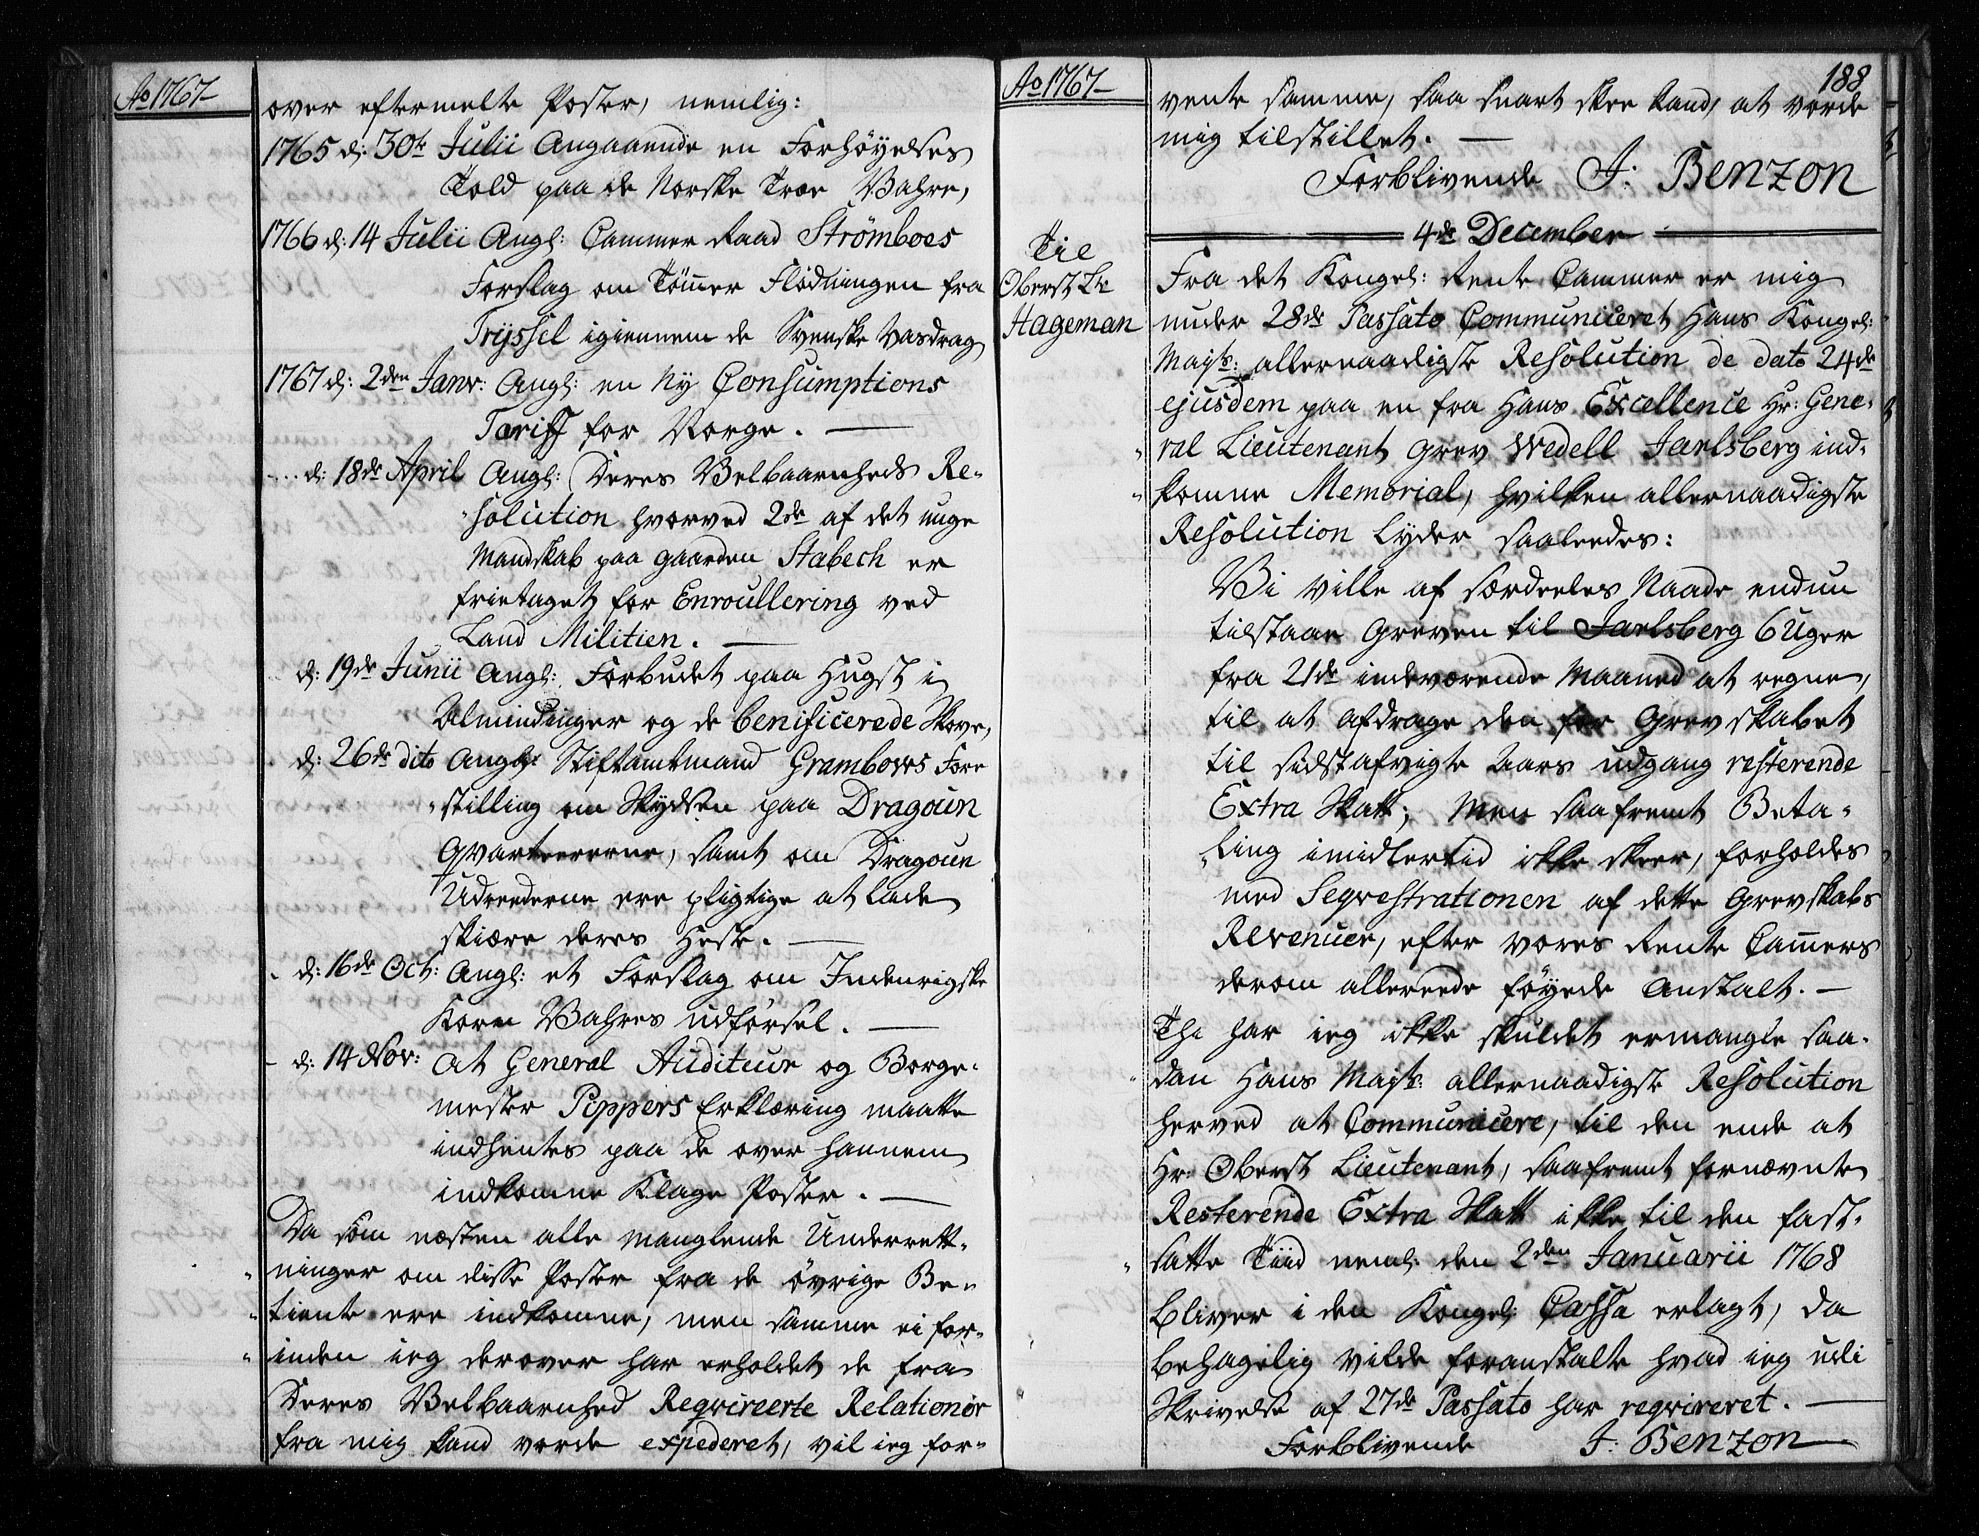 Ao 1767
over eftermelte Poster, nemlig:
1765 d: 30te Julii Angaaende en Forhøyelses
Told paa de Norske Træe Wahre,
1766 d: 14 Julii Angl: Cammer Raad Strömboes
Forslag om Tömer Flödningen fra
Tryssel igiennem de Svenske Vasdrag
1767 d: 2den Janv: Angl: en Ny Consumptions
Tariff for Norge.
d: 18de April Angl: Deres Velbaarenheds Re-
solution hvorved 2de af det unge
Mandskab paa gaarden Stabech er
frietaget for Enroullering ved
Land Militien.
d: 19de Junii Angl: Forbudet paa Hugst i
Almindinger og de benificerede Skove,
d: 26de dito Angl: Stiftamtmand Grambows Fore
stilling om Skydsen paa Dragoun
Qvarteererne, samt om Dragoun
Udreederne ere pligtige at lade
skiære deres Heste.
d: 16de Oct: Angl: et Forslag om Indenrigske
Korn Wahres udförsel.
d: 14 Nov: At General Auditeur og Borge-
mester Peppers Erklæring maatte
indhentes paa de over hannem
indkomne Klage Poster.
Da som næsten alle manglende Underrett-
ninger om disse Poster fra de øvrige Be-
tiente ere indkomne, men samme ei for-
inden ieg derover har erholdet de fra
Deres Velbaarenhed Reqvireerte Relationer
fra mig kand vorde expederet, vil ieg for-
Ao 1767
188
vente samme, saa snart skee kand, at vorde
mig tilstillet.
Forblivende J: Benzon
4de December
Til
Oberst Lt:
Hageman
Fra det Kongel: Rente Cammer er mig
under 28de Passato Communiceret Hans Kongel:
Majts: allernaadigste Resolution de dato 24de
ejusdem paa en fra Hans Excellence Hr: Gene-
ral Lieutenant Grev Wedell Jarlsberg ind-
komne Memorial, hvilken allernaadigste
Resolution lyder saaleedes:
Vi ville af særdeeles Naade endnu
tilstaae Greven til Jarlsberg 6 Uger
fra 21de indeværende Maaned at regne,
til at afdrage den for Grevskabet
til sidstafvigte Aars udgang resterende
Extra Skatt; Men saafremt Beta-
ling imidlertid ikke skeer, forholdes
med Seqvestrationen af dette Grevskabs
Revenuer, efter vores Rente Cam̄ers
derom allereede föyede Anstalt.
Thi har ieg ikke skuldet ermangle saa-
dan Hans Majts: allernaadigste Resolution
herved at Communicere, til den ende at
Hr: Oberst Lieutenant, saafremt fornævnte
Resterende Extra Skatt ikke til den fast-
satte Tiid neml: den 2den Januarii 1768
bliver i den Kongel: Cassa erlagt, da
behagelig vilde foranstalte hvad ieg udi
Skrivelse af 27de Passato har reqvireret.
Forblivende J: Benzon